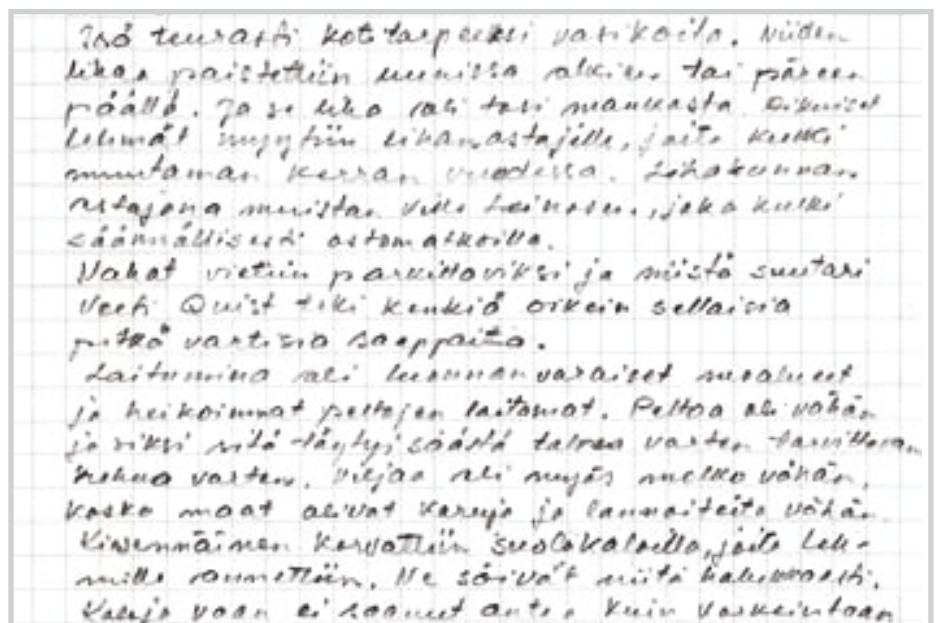 Isä teurasti kotitarpeeksi vasikoita. Niiden
lihaa paistettiin uunissa olkien tai päreen
päällä. Ja se liha oli tosi maukasta. Aikuiset
lehmät myytiin lihanostajille, joita kulki
muutaman kerran vuodessa. Lihakunnan
ostajana muistan Ville Heinosen, joka kulki
säännöllisesti ostomatkoilla.
Nahat vietiin parkittaviksi ja niistä suutari
Veeti Quist teki kenkiä oikein sellaisia
pitkä vartisia saappaita.
Laitumina oli luonnonvaraiset
ja heikoimmat peltojen laitamat. Peltoa oli vähän
ja siksi sitä täytyi säästä talvea varten tarvittavan
varten. Viljaa oli myös melko vähän,
koska maat olivat karuja ja lannoiteita vähän.
Kivennäinen korvattiin suolakaloilla, joita leh-
mille annettiin. Ne söivät niitä halukkaasti.
Kaloja vaan ei saanut antaa kuin